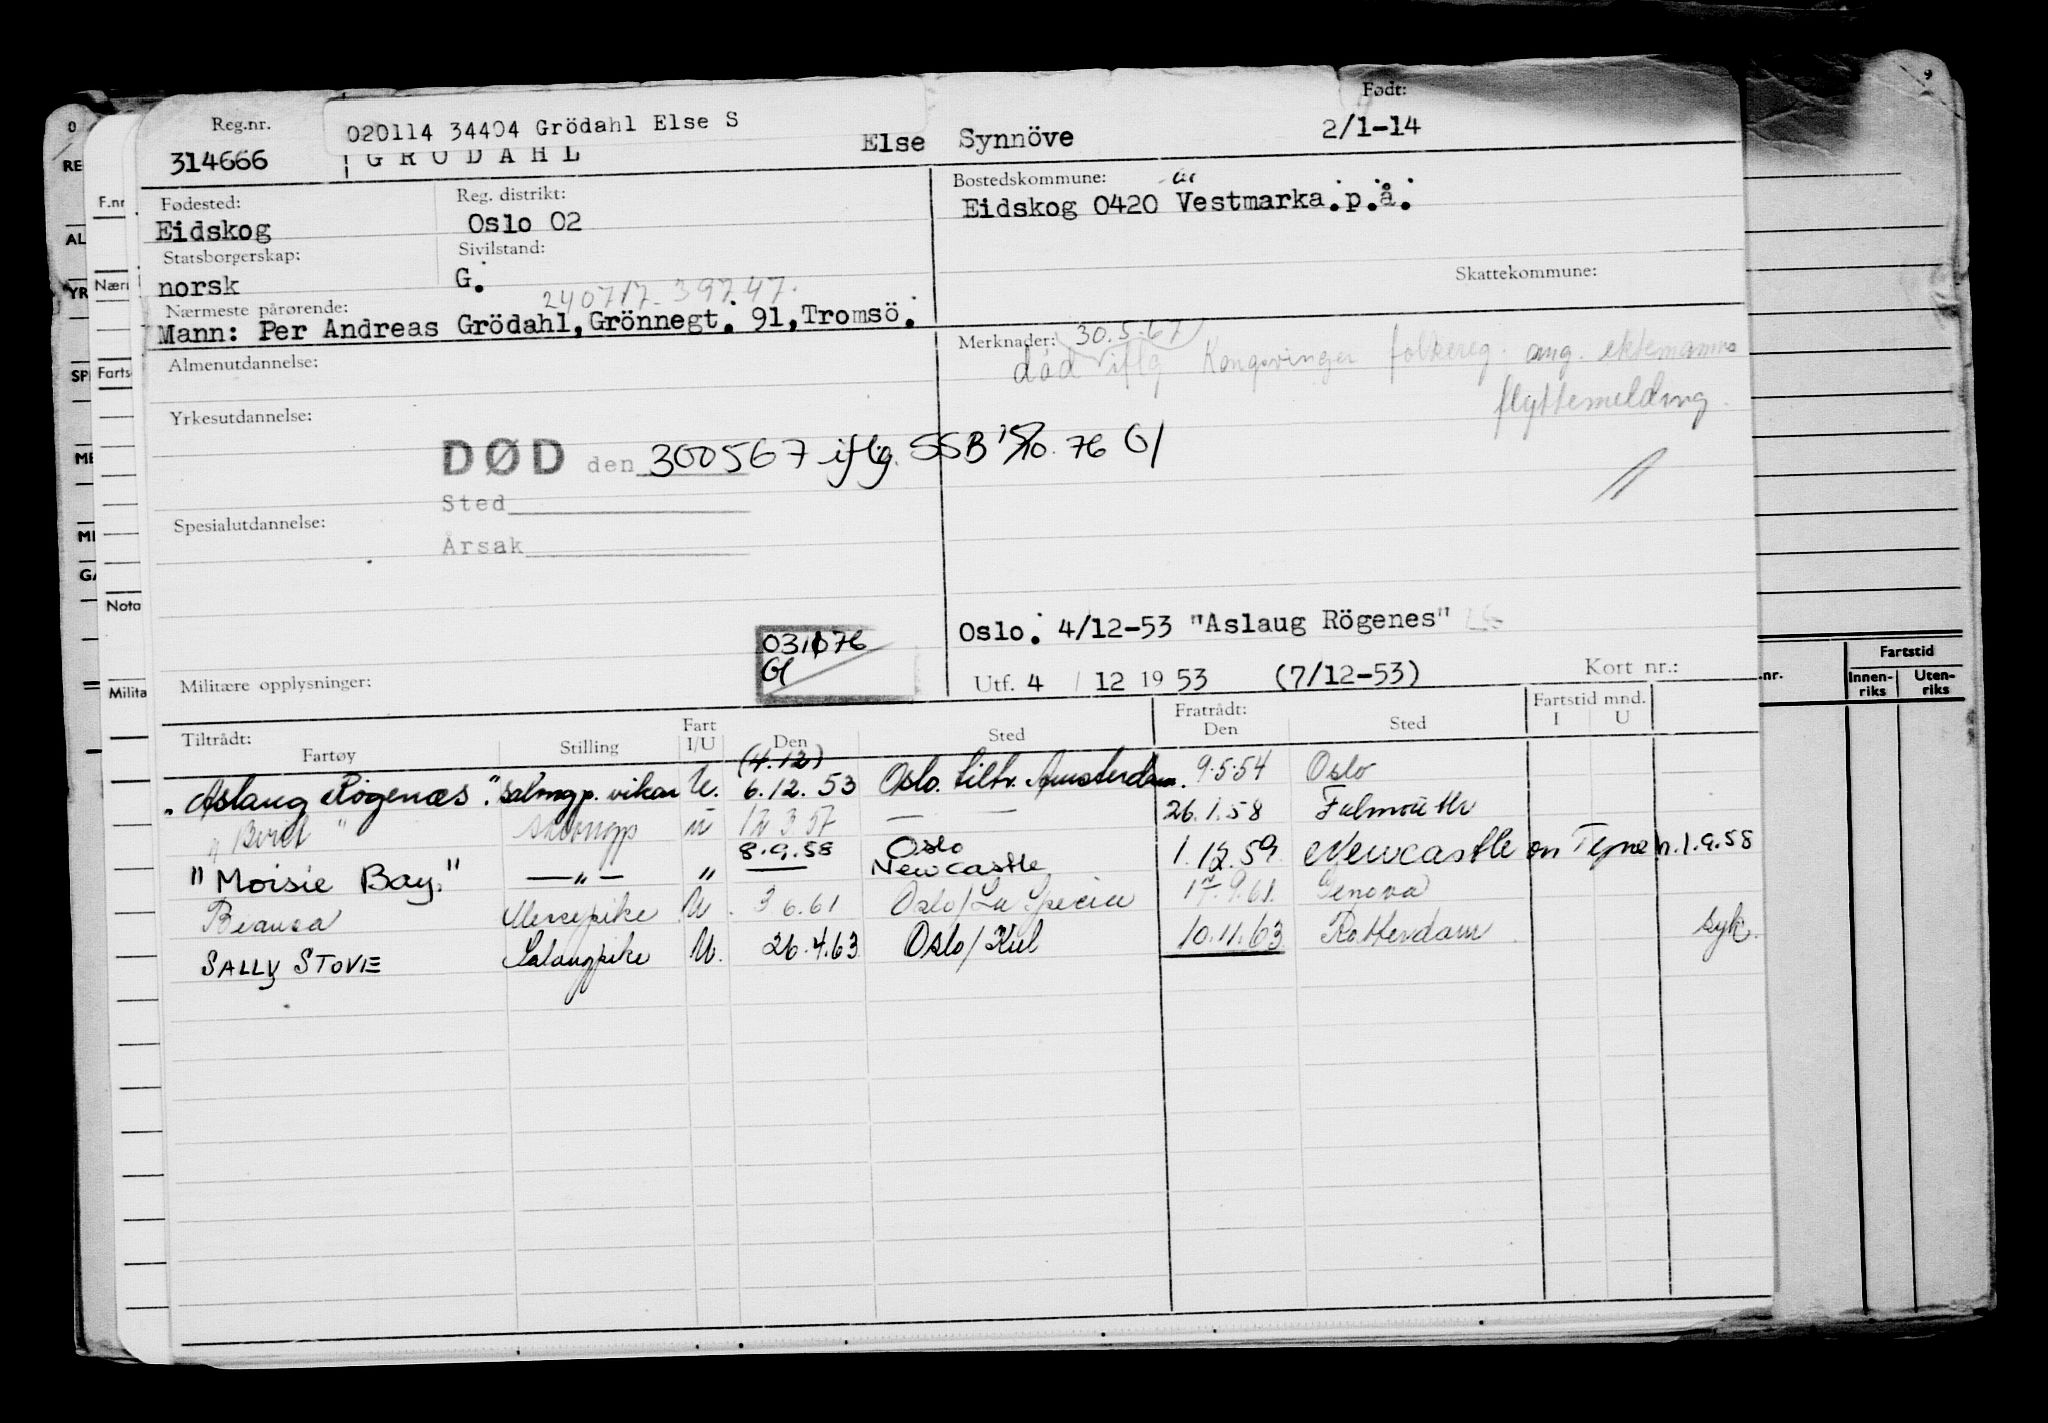 Reg.nr.
020114 34404 Grödahl Else S
Født:
314666
GRÖDAHL
Else Synnöve
2/1-14
Fødested:
Reg. distrikt:
Bostedskommune:
Eidskog
Oslo 02
Eidskog 0420 Vestmarka.p.å.
Statsborgerskap:
Sivilstand:
norsk
G.
Skattekommune:
240717-39747.
Nærmeste pårørende:
Mann: Per Andreas Grödahl, Grönnegt. 91, Tromsö.
Merknader: 30.5.67
død iflg Kongsvinger folkereg. ang. ektemanns
flyttemelding.
Almenutdannelse:
Yrkesutdannelse:
DØD den 300567 iflg. SSB 15/10.76 Gl
Sted
Spesialutdannelse:
Årsak
031076
Gl
Oslo. 4/12-53 "Aslaug Rögenes"
Militære opplysninger:
Utf. 4 / 12 1953 (7/12-53)
Kort nr.:
Tiltrådt:
Fartøy
Stilling
Fart I/U
Den
Sted
Fratrådt:
Den
Sted
Fartstid mnd.
I U
(4.12)
"Aslaug Rogenæs". Salongp. vikar U. 6.12.53 Oslo. tiltr. Amsterdam. 9.5.54 Oslo
"Berit" salongp u 12 3 57 — — 26.1.58 Falmouth
8.9.58 Oslo
"Moisie Bay." —"— " — Newcastle 1.12.59 Newcastle on Tyne n.1.9.58
Beausa Messepike U. 3 6.61 Oslo/La Spezia 1 9.61. Genova
SALLY STOVE Salongpike U. 26.4.63 Oslo/Kiel 10.11.63 Rotterdam syk.
O
RE
AL
YR
SP
ME
MI
GA
F.nr
Nærr
Farts
Nota
Milita
9
.nr.
Fartstid
Innen-
riks
Uten-
riks